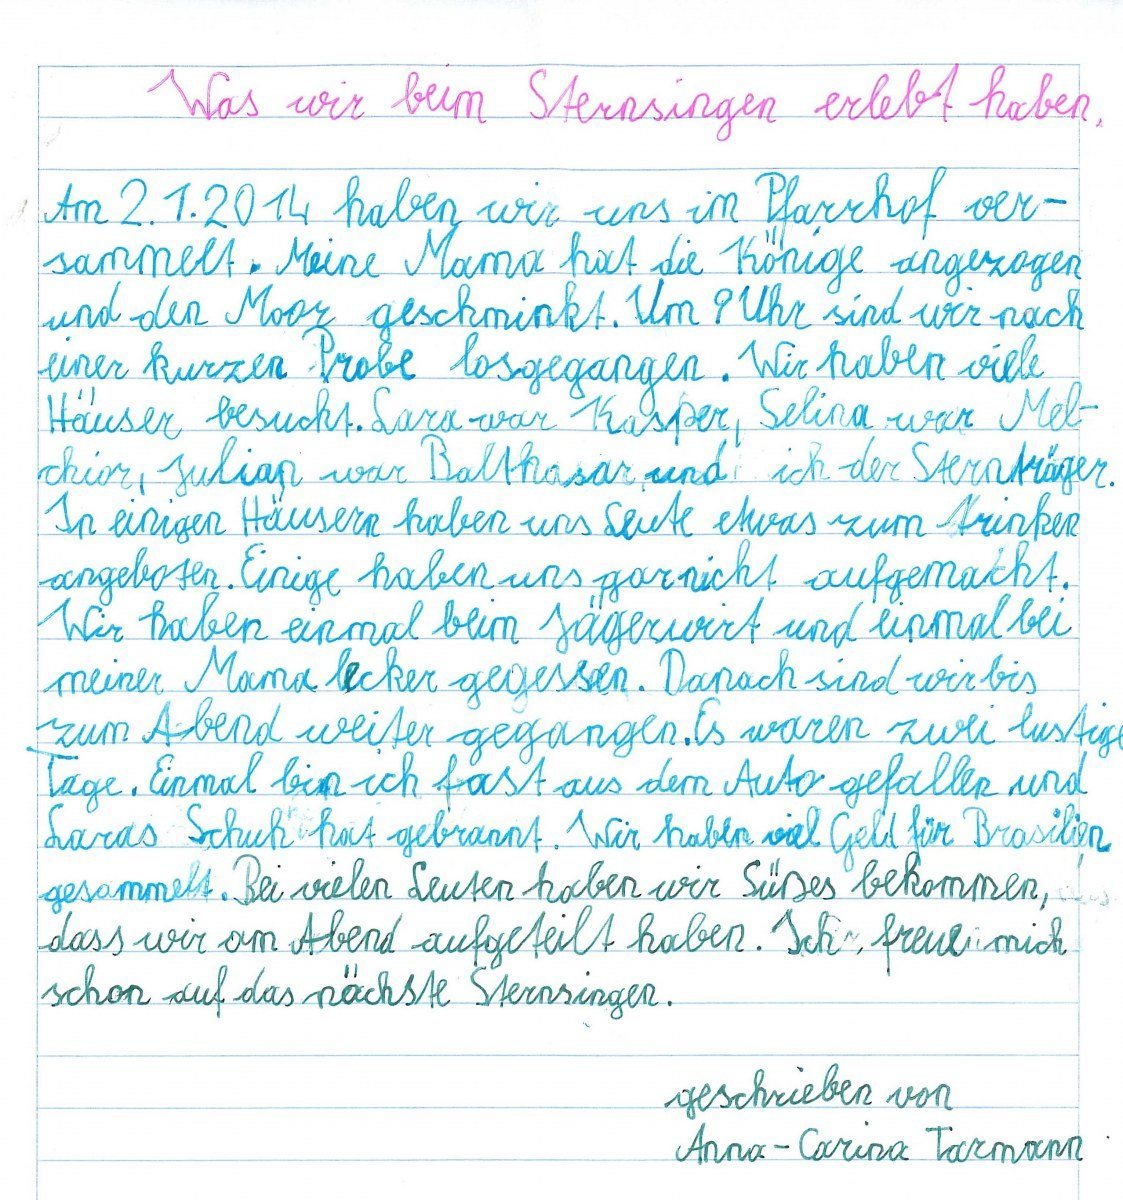 Was wir beim Sternsingen erlebt haben.
Am 2.1.2014 haben wir uns im Pfarrhof ver-
sammelt. Meine Mama hat die Könige angezogen
und den Moor geschminkt. Um 9 Uhr sind wir nach
einer kurzen Probe losgegangen. Wir haben viele
Häuser besucht. Lara war Kasper, Selina war Mel-
chior, Julian war Balthasar und ich der Sternträger.
In einigen Häusern haben uns Leute etwas zum trinken
angeboten. Einige haben uns garnicht aufgemacht.
Wir haben einmal beim Jägerwirt und einmal bei
meiner Mama lecker gegessen. Danach sind wir bis
zum Abend weiter gegangen. Es waren zwei lustige
Tage. Einmal bin ich fast aus dem Auto gefallen und
Laras Schuh hat gebrannt. Wir haben viel Geld für Brasilien
gesammelt. Bei vielen Leuten haben wir Süßes bekommen,
dass wir am Abend aufgeteilt haben. Ich freue mich
schon auf das nächste Sternsingen.
geschrieben von
Anna-Carina Tarmann